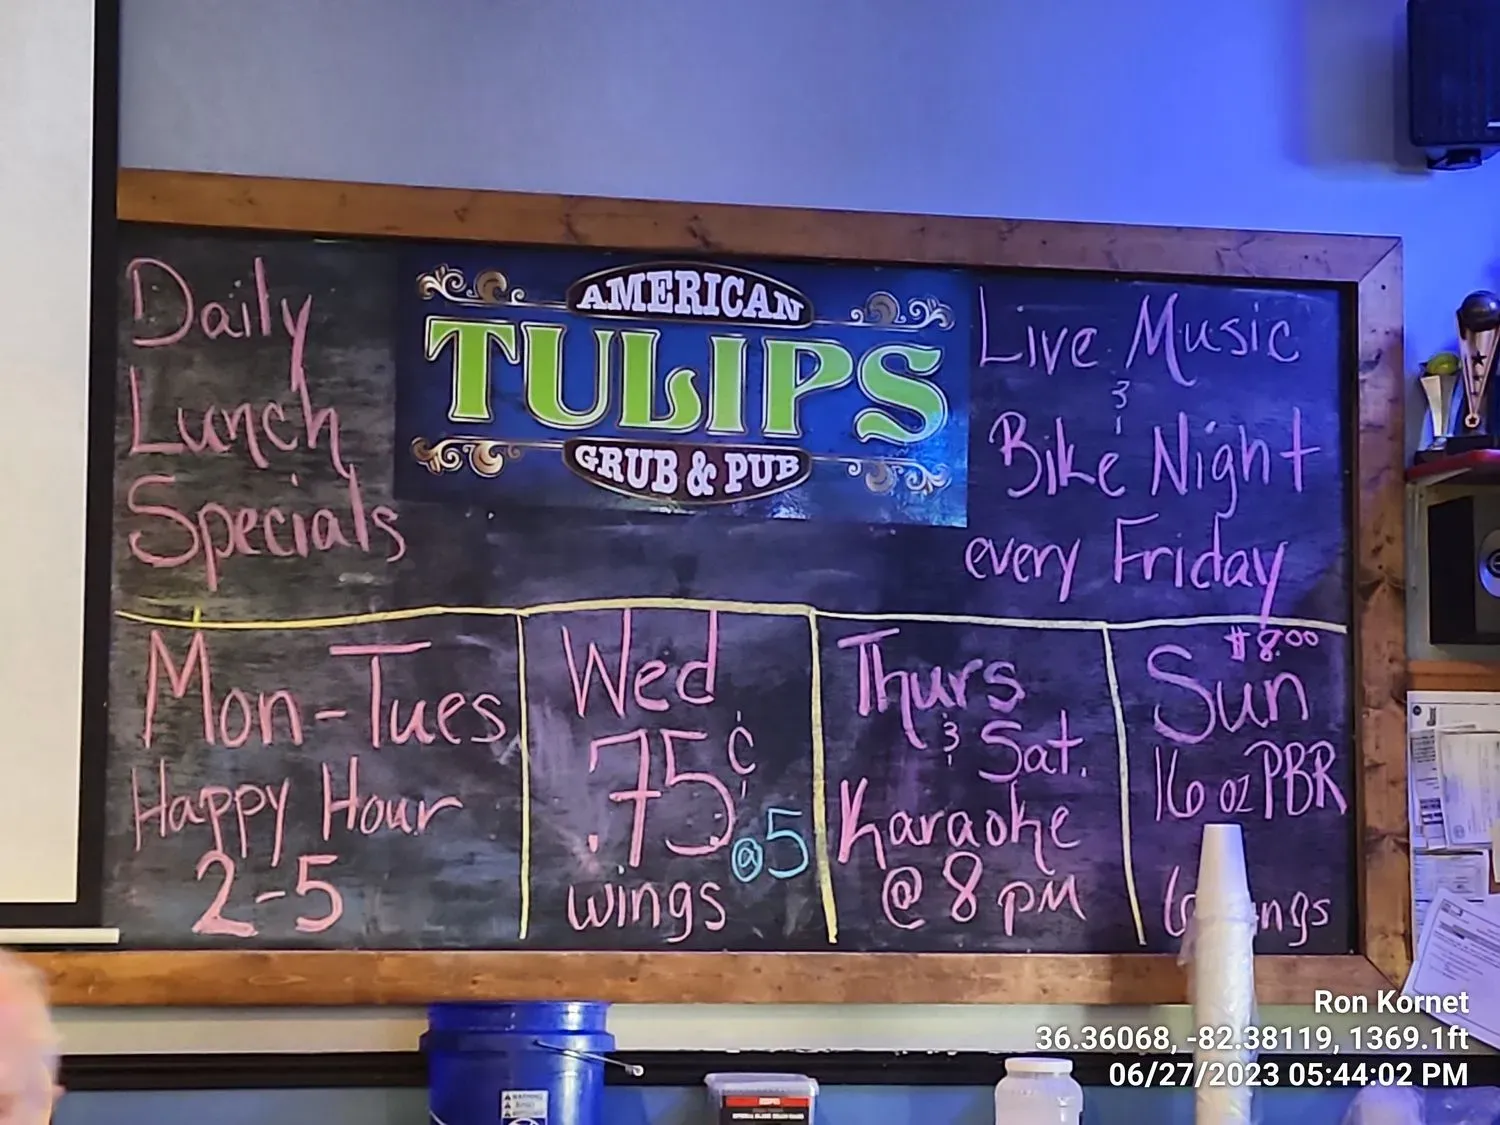 Daily
Lunch
Specials
AMERICAN
TULIPS
GRUB & PUB
Live Music
&
Bike Night
every Friday
Mon-Tues
Happy Hour
2-5
Wed
.75¢
@5
wings
Thurs
& Sat.
Karaoke
@ 8 pm
$8.00
Sun
16 oz PBR
6
Ron Kornet
36.36068, -82.38119, 1369.1ft
06/27/2023 05:44:02 PM